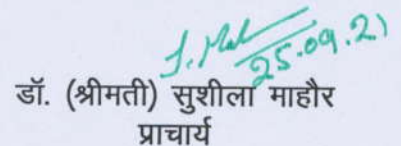 25.09.21
डॉ. (श्रीमती) सुशीला माहौर
प्राचार्य